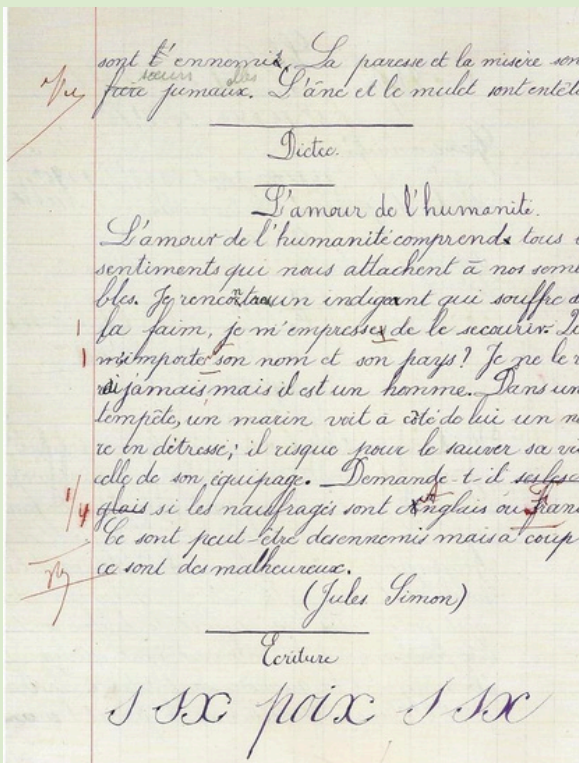 sont l'ennemis. La paresse et la misère son
sœurs
frère jumaux. L'âne et le mulet sont entêté
Dictée.
L'amour de l'humanité.
L'amour de l'humanité comprend tous
sentiments qui nous attachent à nos sem
bles. Je rencontre un indigent qui souffre d
la faim, je m'empresse de le secourir. Q
m'importe son nom et son pays? Je ne le
ai jamais, mais il est un homme. Dans un
tempête, un marin voit à côté de lui un na
re en détresse; il risque pour le sauver sa vi
celle de son équipage. Demande-t-il
glais si les naufragés sont Anglais ou Franç
Ce sont peut-être des ennemis mais à coup
ce sont des malheureux.
(Jules Simon)
Ecriture
s sx poix s sx